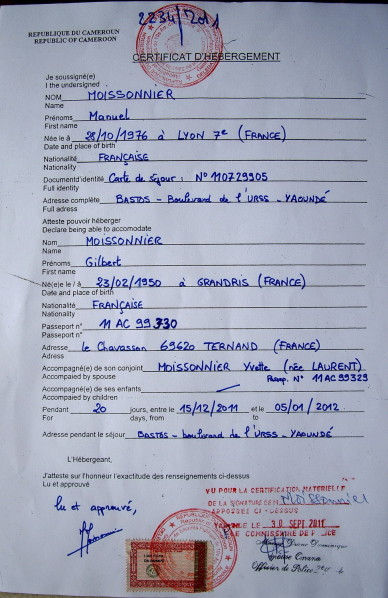 2234/2011
REPUBLIQUE DU CAMEROUN
REPUBLIC OF CAMEROON
CERTIFICAT D'HÉBERGEMENT
Je soussigné(e)
I the undersigned
NOM MOISSONNIER
Name
Prénoms Manuel
First name
Née le à 28/10/1976 à LYON 7e (FRANCE)
Date and place of birth
Nationalité FRANÇAISE
Nationality
Documentd'identité Carte de séjour : N° 110729905
Full identity
Adresse complète BASTOS - Boulevard de l'URSS - YAOUNDÉ
Full adress
Atteste pouvoir héberger
Declare being able to accomodate
Nom MOISSONNIER
Name
Prénoms Gilbert
First name
Né(e)le / à 23/02/1950 à GRANDRIS (FRANCE)
Date and place of birth
Nationalité FRANÇAISE
Nationality
Passeport n° 11 AC 99330
Passport n°
Adresse le Chavasson 69620 TERNAND (FRANCE)
Adress
Accompagné(e) de son conjoint MOISSONNIER Yvette (née LAURENT)
Accompanied by spouse Passp. N° 11AC99329
Accompagné(e) de ses enfants
Accompanied by children
Pendant 20 jours, entre le 15/12/2011 et le 05/01/2012
For days, from to
Adresse pendant le séjour BASTOS - boulevard de l'URSS - YAOUNDÉ
L'Hébergeant,
J'atteste sur l'honneur l'exactitude des renseignements ci-dessus
Lu et approuvé
Lu et approuvé,
VU POUR LA CERTIFICATION MATERIELLE
DE LA SIGNATURE DE M. MOISSONNIER
APPOSEE CI-DESSUS
YAOUNDE LE 30 SEPT 2011
LE COMMISSAIRE DE POLICE
épouse Onana
Officier de Police